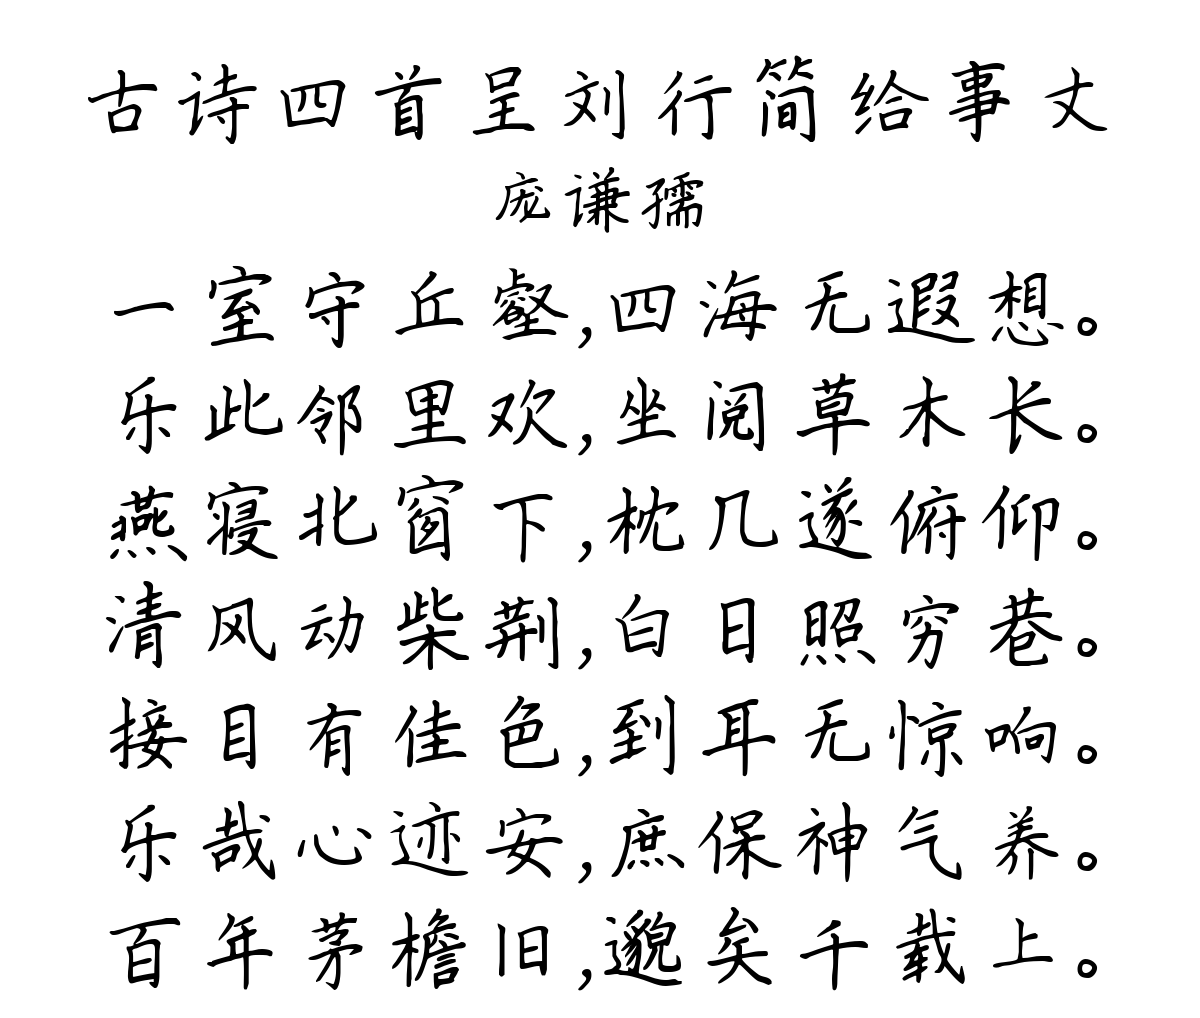 古诗四首呈刘行简给事丈
庞谦孺
一室守丘壑,四海无遐想。
乐此邻里欢,坐阅草木长。
燕寝北窗下,枕几遂俯仰。
清风动柴荆,白日照穷巷。
接目有佳色,到耳无惊响。
乐哉心迹安,庶保神气养。
百年茅檐旧,邈矣千载上。